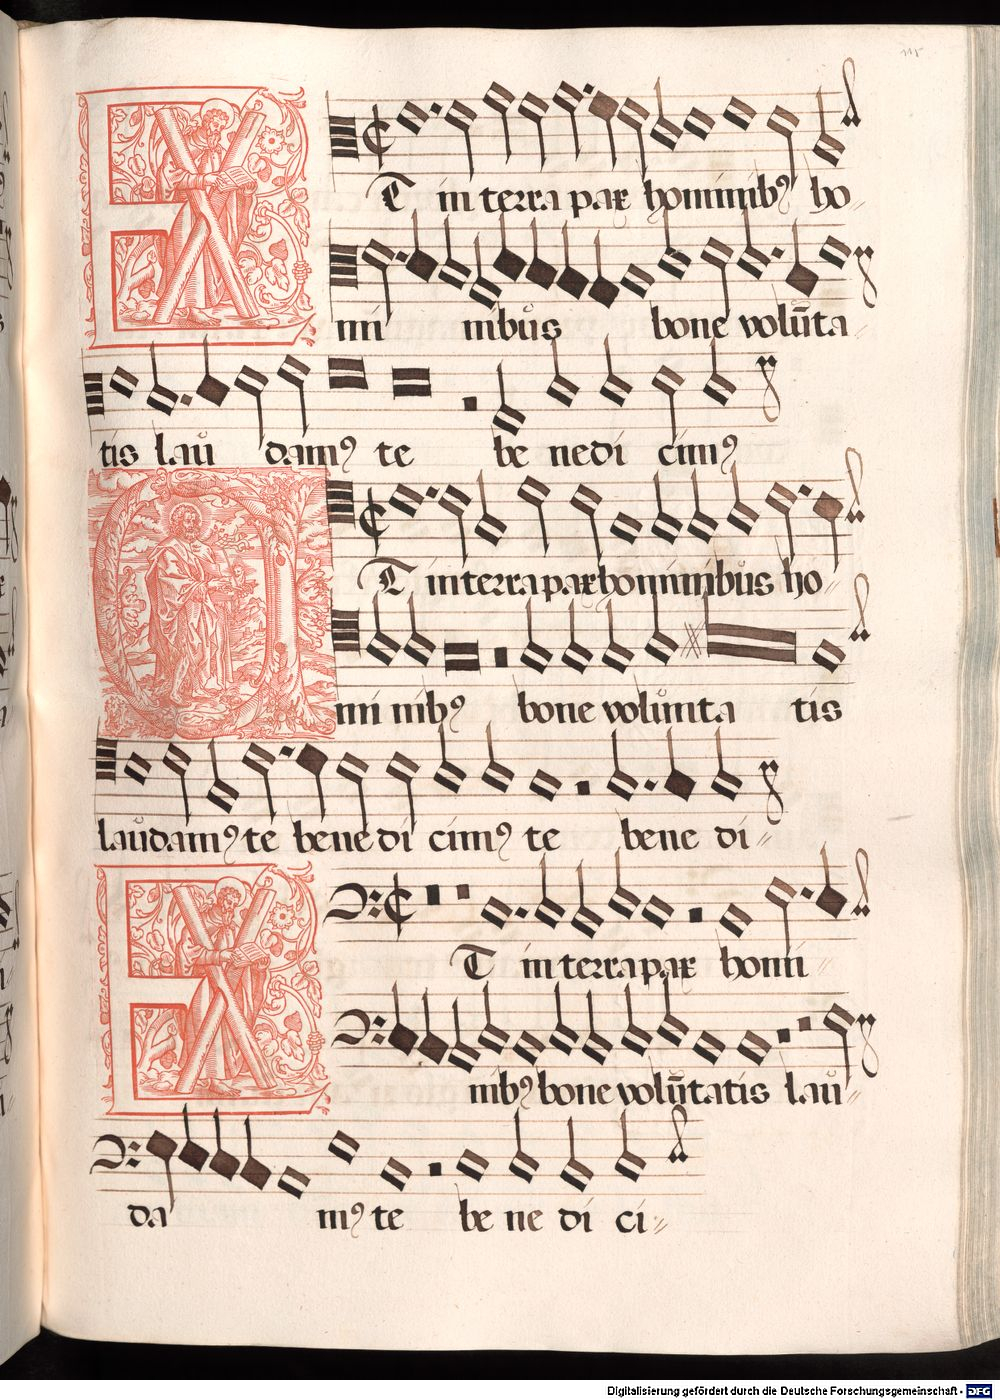 115
Et in terra pax hominib9 ho
mi nibus bone volūta
tis lau dam9 te be nedi cim9
Et in terra pax hominibus ho
mi nib9 bone volunta tis
laudam9 te bene di cim9 te bene di
Et in terra pax homi
nib9 bone volūtatis lau
da m9 te be ne di ci
Digitalisierung gefördert durch die Deutsche Forschungsgemeinschaft - DFG